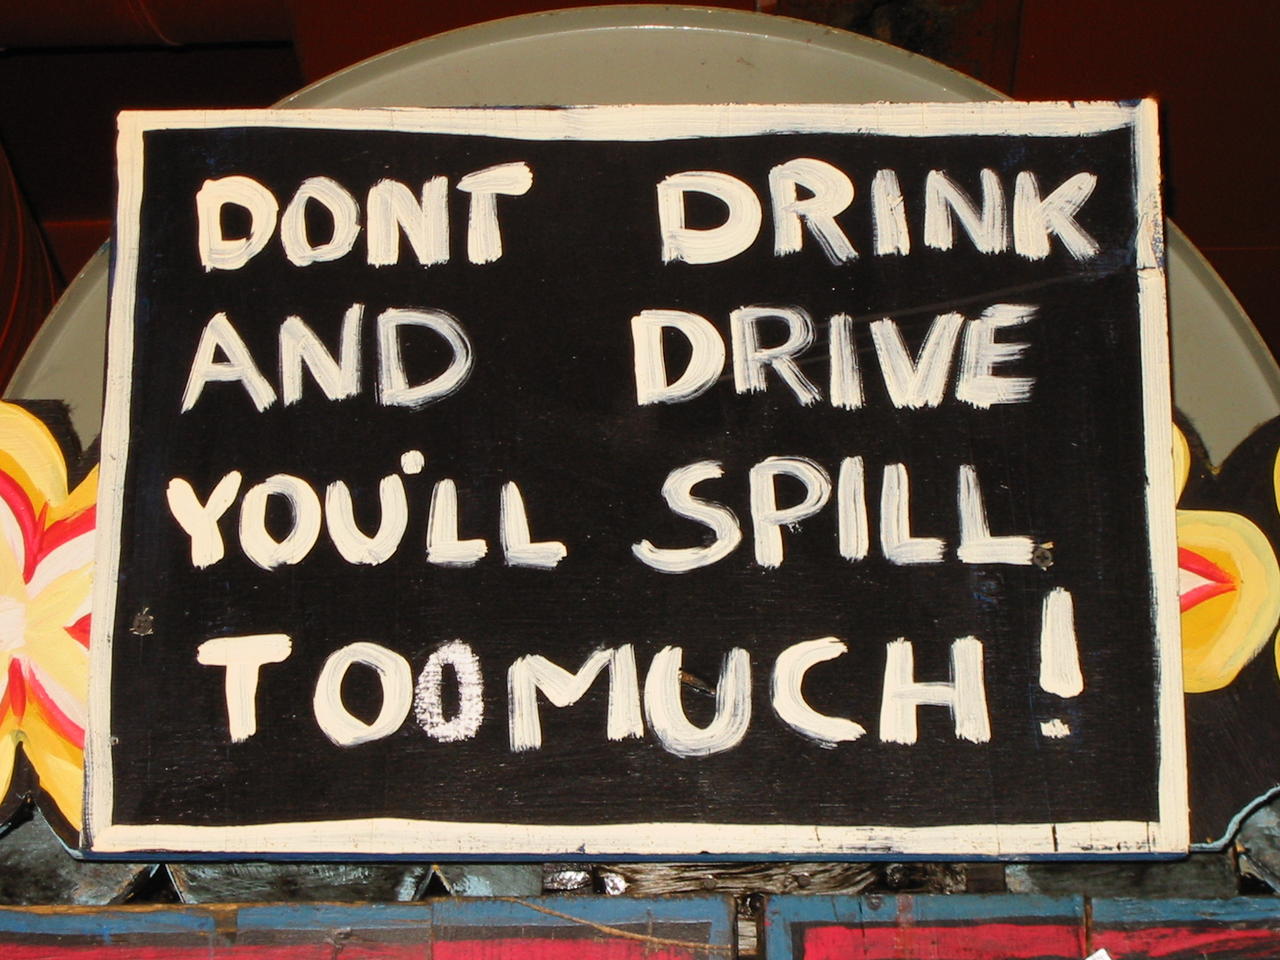 DONT DRINK
AND DRIVE
YOU'LL SPILL
TOO MUCH!